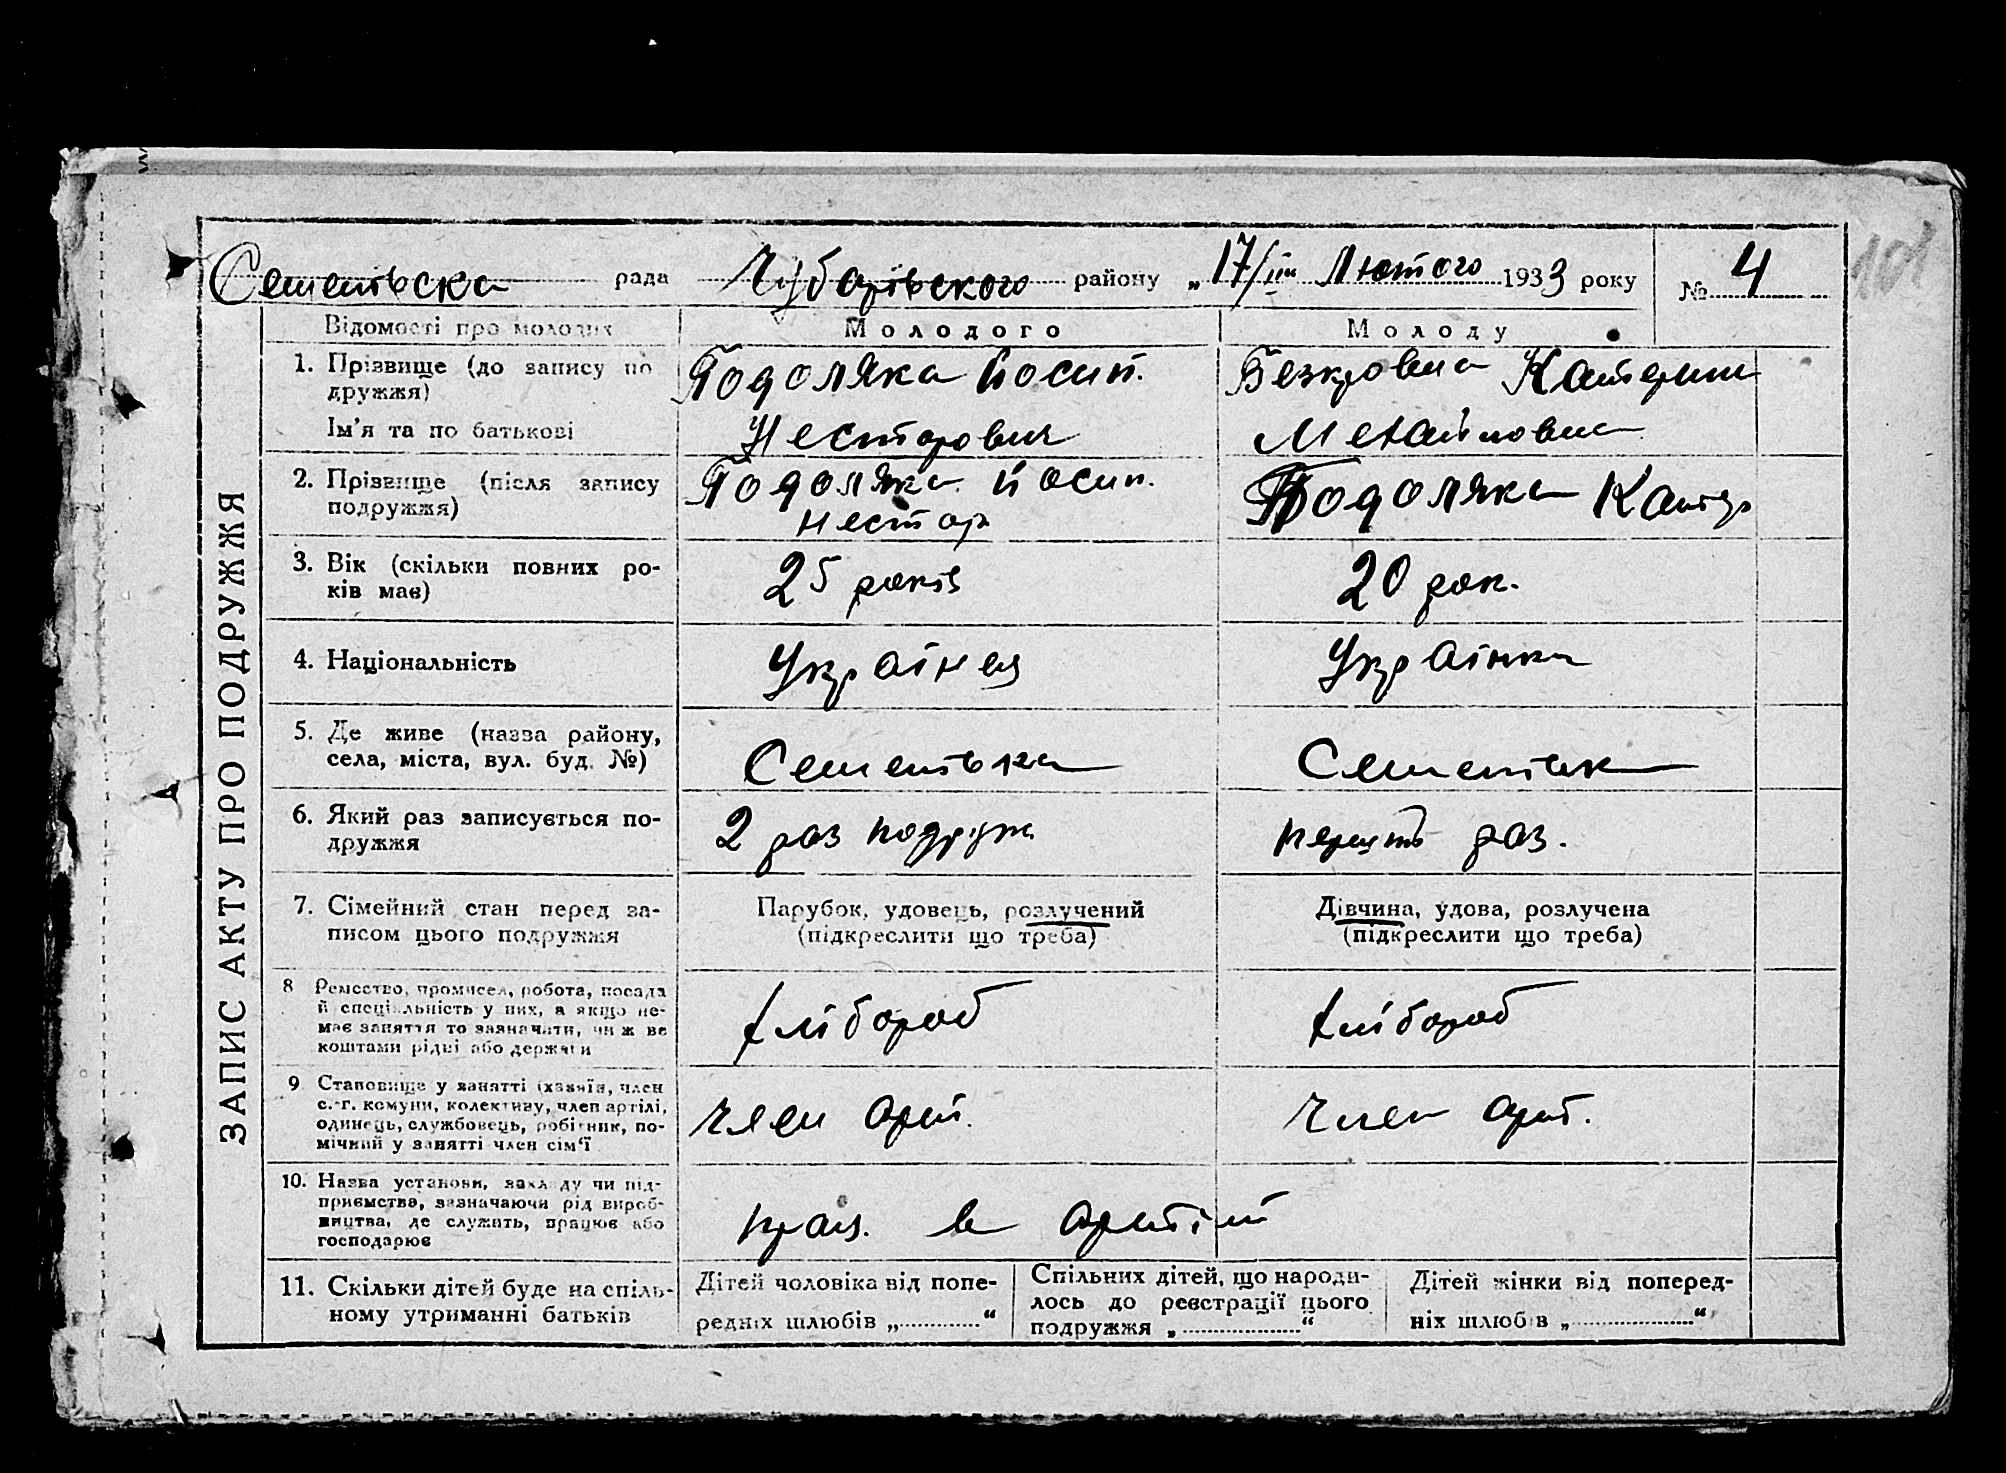 101
Семенівска рада Чубарівского району „17/ІІ“ Лютого 1933 року № 4
ЗАПИС АКТУ ПРО ПОДРУЖЖЯ
Відомості про молодих
Молодого
Молоду
1. Прізвище (до запису по
дружжя)
Ім'я та по батькові
Подоляка Йосип.
Несторович
Безкровна Катерин
Михайловна
2. Прізвище (після запису
подружжя)
Подоляка Йосип.
Нестор
Подоляка Катер
3. Вік (скільки повних ро-
ків має)
25 років
20 рок.
4. Національність
Українец
Українка
5. Де живе (назва району,
села, міста, вул. буд. №)
Семенівка
Семенівк
6. Який раз записується по-
дружжя
2 раз подруж
раз.
7. Сімейний стан перед за-
писом цього подружжя
Парубок, удовець, розлучений
(підкреслити що треба)
Дівчина, удова, розлучена
(підкреслити що треба)
8 Ремество, промисел, робота, посада
й спеціяльність у них, а якщо не-
має заняття то зазначити, чи ж ве
коштами рідні або держави
хлібороб
хлібороб
9 Становище у занятті (хазяїн, член
с.-г. комуни, колективу, член артілі,
одинець, службовець, робітник, по-
мічний у занятті член сім'ї
член арт.
член арт.
10. Назва установи, закладу чи під-
приємства, зазначаючи рід вироб-
ництва, де служить, працює або
господарює
прац. в артіл
11. Скільки дітей буде на спіль-
ному утриманні батьків
Дітей чоловіка від попе-
редніх шлюбів „ “
Спільних дітей, що народи-
лось до реєстрації цього
подружжя „ “
Дітей жінки від поперед-
ніх шлюбів „ “